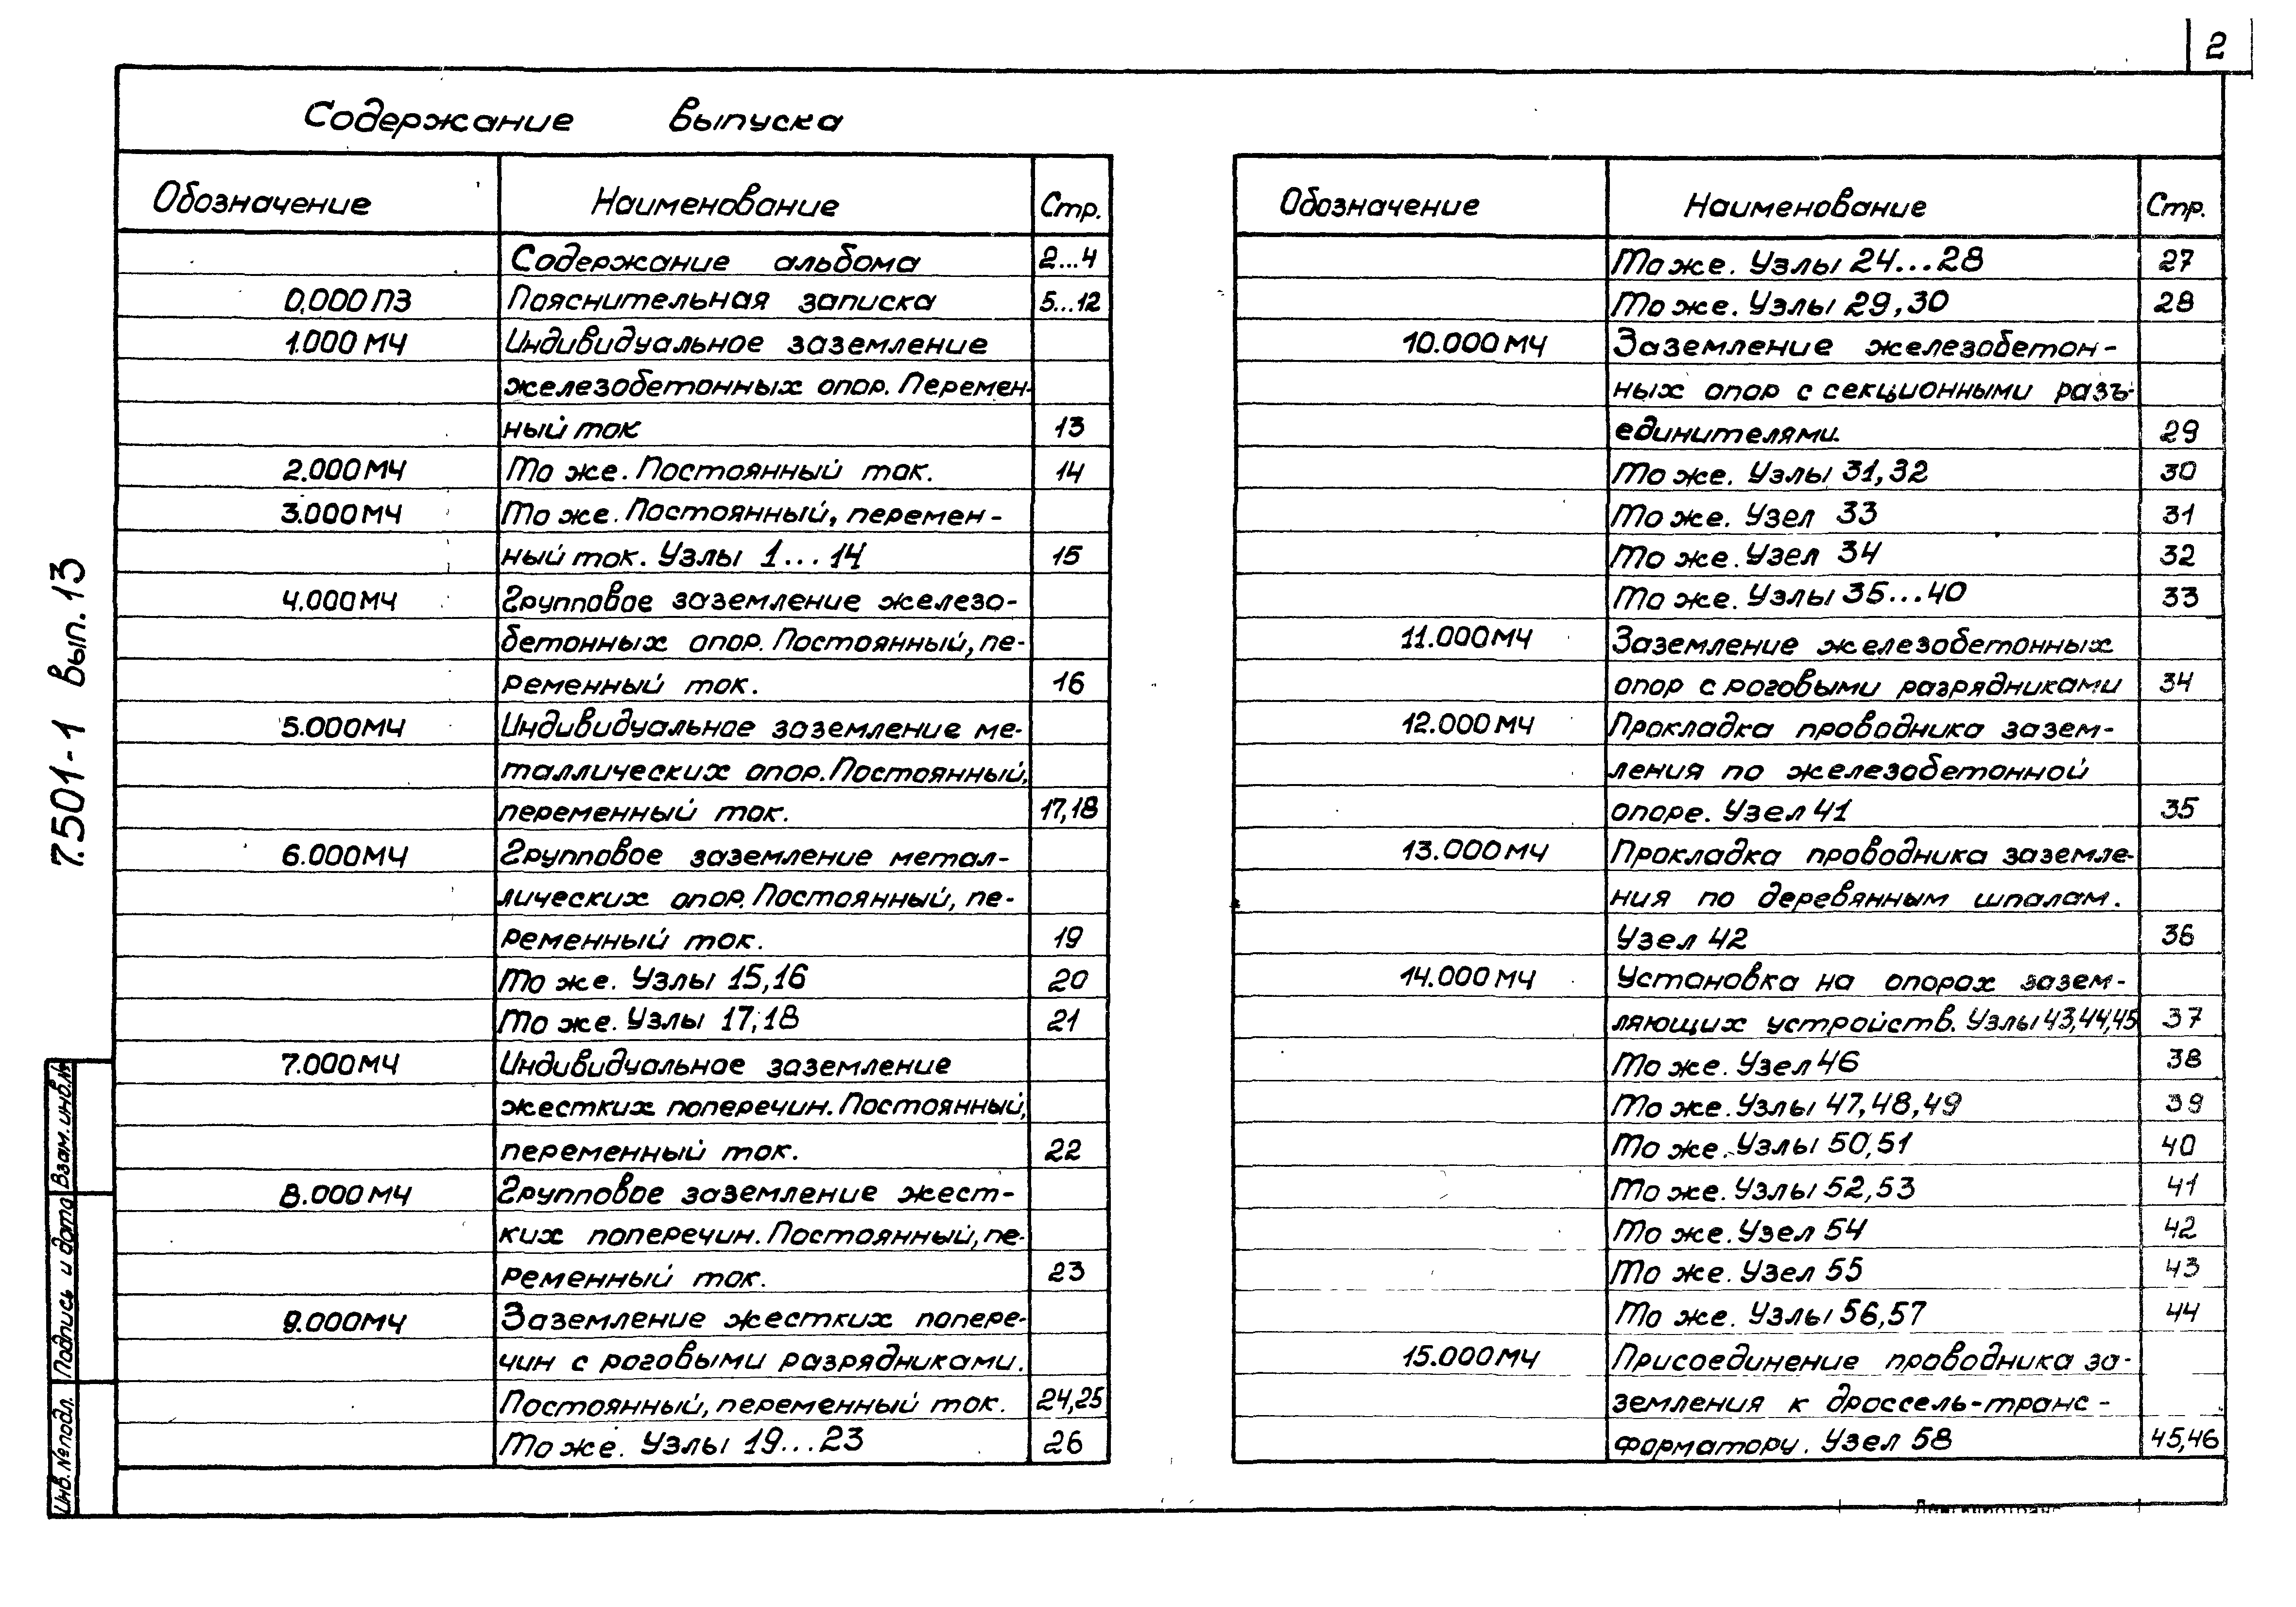 2
Содержание выпуска
Обозначение Наименование Стр.
Содержание альбома 2...4
0.000 ПЗ Пояснительная записка 5...12
1.000 МЧ Индивидуальное заземление
железобетонных опор. Перемен-
ный ток 13
2.000 МЧ То же. Постоянный ток. 14
3.000 МЧ То же. Постоянный, перемен-
ный ток. Узлы 1...14 15
4.000 МЧ Групповое заземление железо-
бетонных опор. Постоянный, пе-
ременный ток. 16
5.000 МЧ Индивидуальное заземление ме-
таллических опор. Постоянный,
переменный ток. 17,18
6.000 МЧ Групповое заземление метал-
лических опор. Постоянный, пе-
ременный ток. 19
То же. Узлы 15,16 20
То же. Узлы 17,18 21
7.000 МЧ Индивидуальное заземление
жестких поперечин. Постоянный,
переменный ток. 22
8.000 МЧ Групповое заземление жест-
ких поперечин. Постоянный, пе-
ременный ток. 23
9.000 МЧ Заземление жестких попере-
чин с роговыми разрядниками.
Постоянный, переменный ток. 24,25
То же. Узлы 19...23 26
Обозначение Наименование Стр.
То же. Узлы 24...28 27
То же. Узлы 29,30 28
10.000 МЧ Заземление железобетон-
ных опор с секционными разъ-
единителями. 29
То же. Узлы 31,32 30
То же. Узел 33 31
То же. Узел 34 32
То же. Узлы 35...40 33
11.000 МЧ Заземление железобетонных
опор с роговыми разрядниками 34
12.000 МЧ Прокладка проводника зазем-
ления по железобетонной
опоре. Узел 41 35
13.000 МЧ Прокладка проводника заземле-
ния по деревянным шпалам.
Узел 42 36
14.000 МЧ Установка на опорах зазем-
ляющих устройств. Узлы 43,44,45 37
То же. Узел 46 38
То же. Узлы 47,48,49 39
То же. Узлы 50,51 40
То же. Узлы 52,53 41
То же. Узел 54 42
То же. Узел 55 43
То же. Узлы 56,57 44
15.000 МЧ Присоединение проводника за-
земления к дроссель-транс-
форматору. Узел 58 45,46
7.501-1 Вып. 13
Инв. № подл. Подпись и дата Взам. инв. №